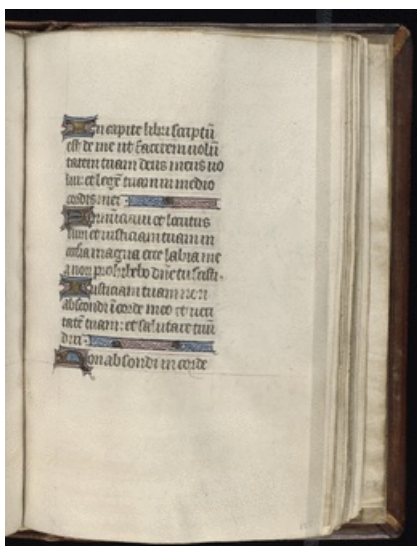 In capite libri scriptũ
est de me ut facerem volũ
tatem tuam deus meus vo
lui: et legẽ tuam in medio
cordis mei
tuam in
a magna ecce labia me
a non prohibebo dñe tu scisti.
Iusticiam tuam non
abscondi ĩ corde meo et veri
tatẽ tuam: et salutare tuũ
dixi
Non abscondi in corde